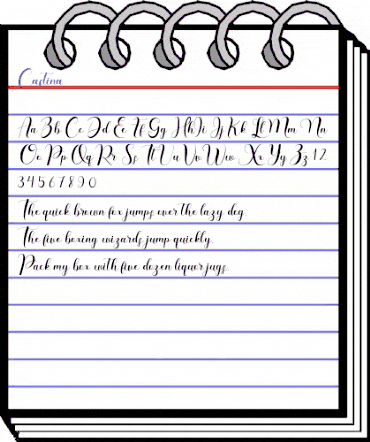 Castina
Aa Bb Cc Dd Ee Ff Gg Hh Ii Jj Kk Ll Mm Nn
Oo Pp Qq Rr Ss Tt Uu Vv Ww Xx Yy Zz 1 2
3 4 5 6 7 8 9 0
The quick brown fox jumps over the lazy dog.
The five boxing wizards jump quickly.
Pack my box with five dozen liquor jugs.